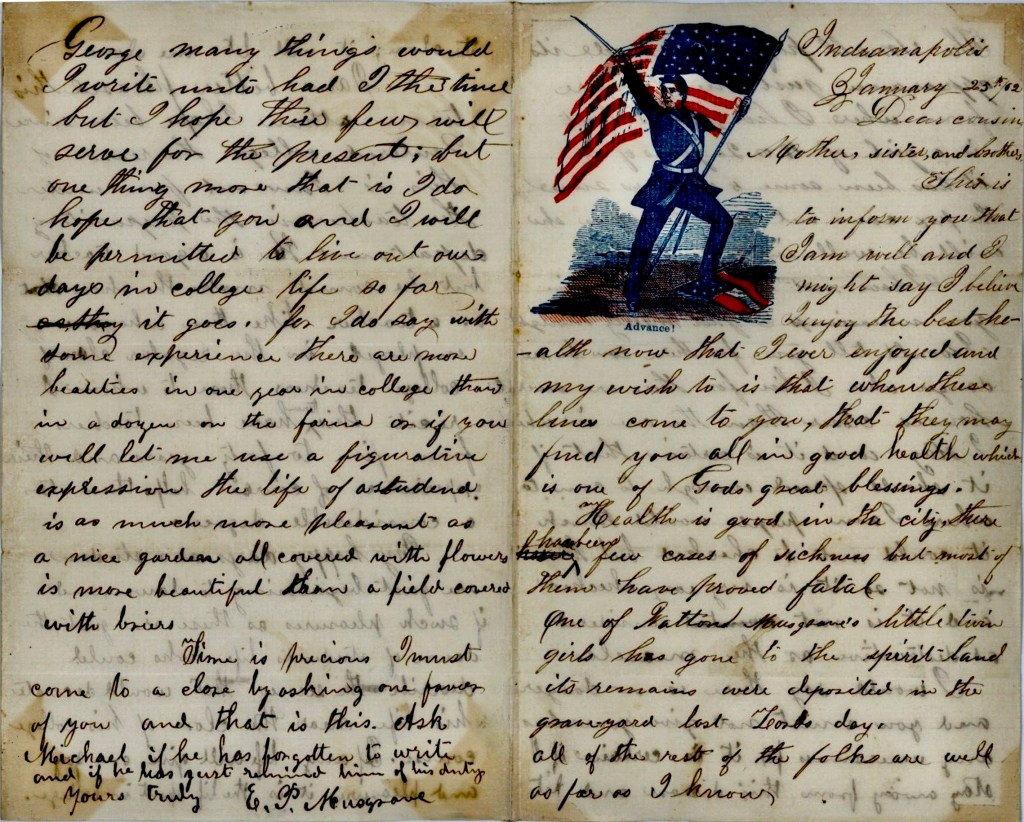 George many things would
I write unto had I the time
but I hope these few will
serve for the present; but
one thing more that is I do
hope that you and I will
be permitted to live out our
days in college life so far
as they it goes. for I do say with
some experience there are more
beauties in one year in college than
in a dozen on the farm or if you
will let me use a figurative
expression the life of a studend
is as much more pleasant as
a nice garden all covered with flowers
is more beautiful than a field covered
with briers
Time is precious I must
come to a close by asking one favor
of you and that is this. Ask
Michael if he has forgotten to write
and if he has just remind him of his duty
Yours truly E. P. Musgrave
Indianapolis
January 23th/62
Dear cousin
Mother, sister, and brothers
This is
to inform you that
I am well and I
might say I believe
I injoy the best he-
-alth now that I ever enjoyed and
my wish to is that when these
lines come to you, that they may
find you all in good health which
is one of Gods great blessings.
Health is good in the city, there
has been
few cases of sickness but most of
them have proved fatal.
One of Musgrave's little twin
girls has gone to the spirit land
its remains were deposited in the
graveyard last Lords day.
all of the rest of the folks are well
as far as I know
Advance!